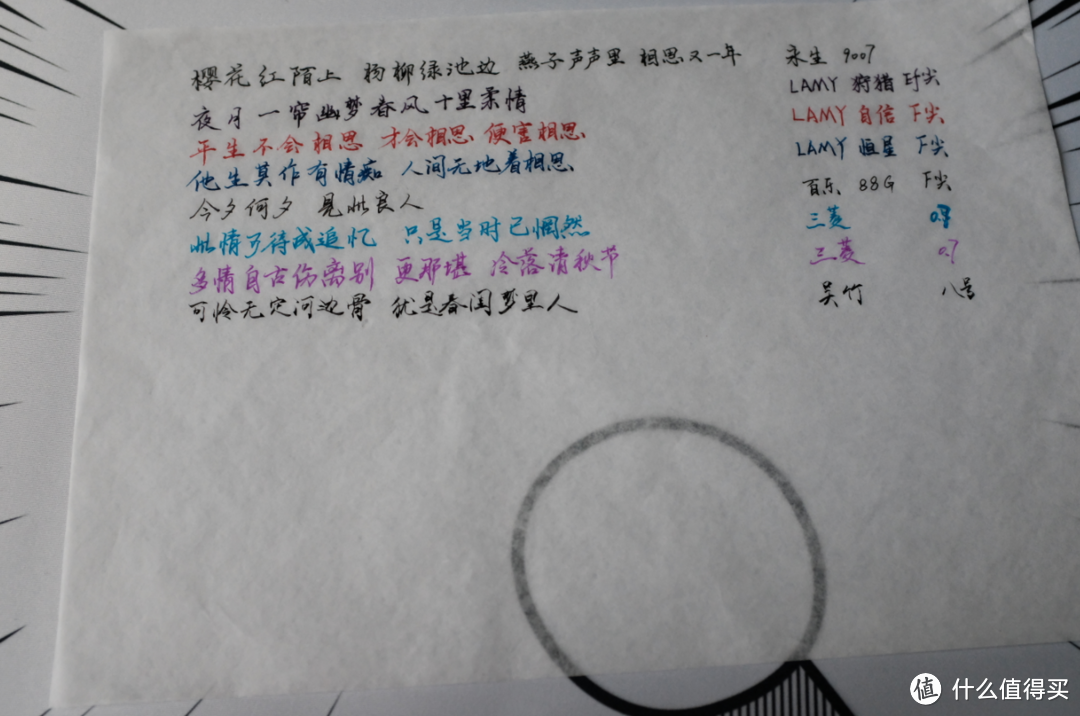 樱花红陌上 杨柳绿池边 燕子声声里 相思又一年 永生 9007
夜月一帘幽梦春风十里柔情 LAMY 狩猎 EF尖
平生不会相思 才会相思 便害相思 LAMY 自信 F尖
他生莫作有情痴 人间无地着相思 LAMY 恒星 F尖
今夕何夕 见此良人 百乐 88G F尖
此情可待成追忆 只是当时已惘然 三菱 0.9
多情自古伤离别 更那堪 冷落清秋节 三菱 0.7
可怜无定河边骨 犹是春闺梦里人 吴竹 八号
值 什么值得买